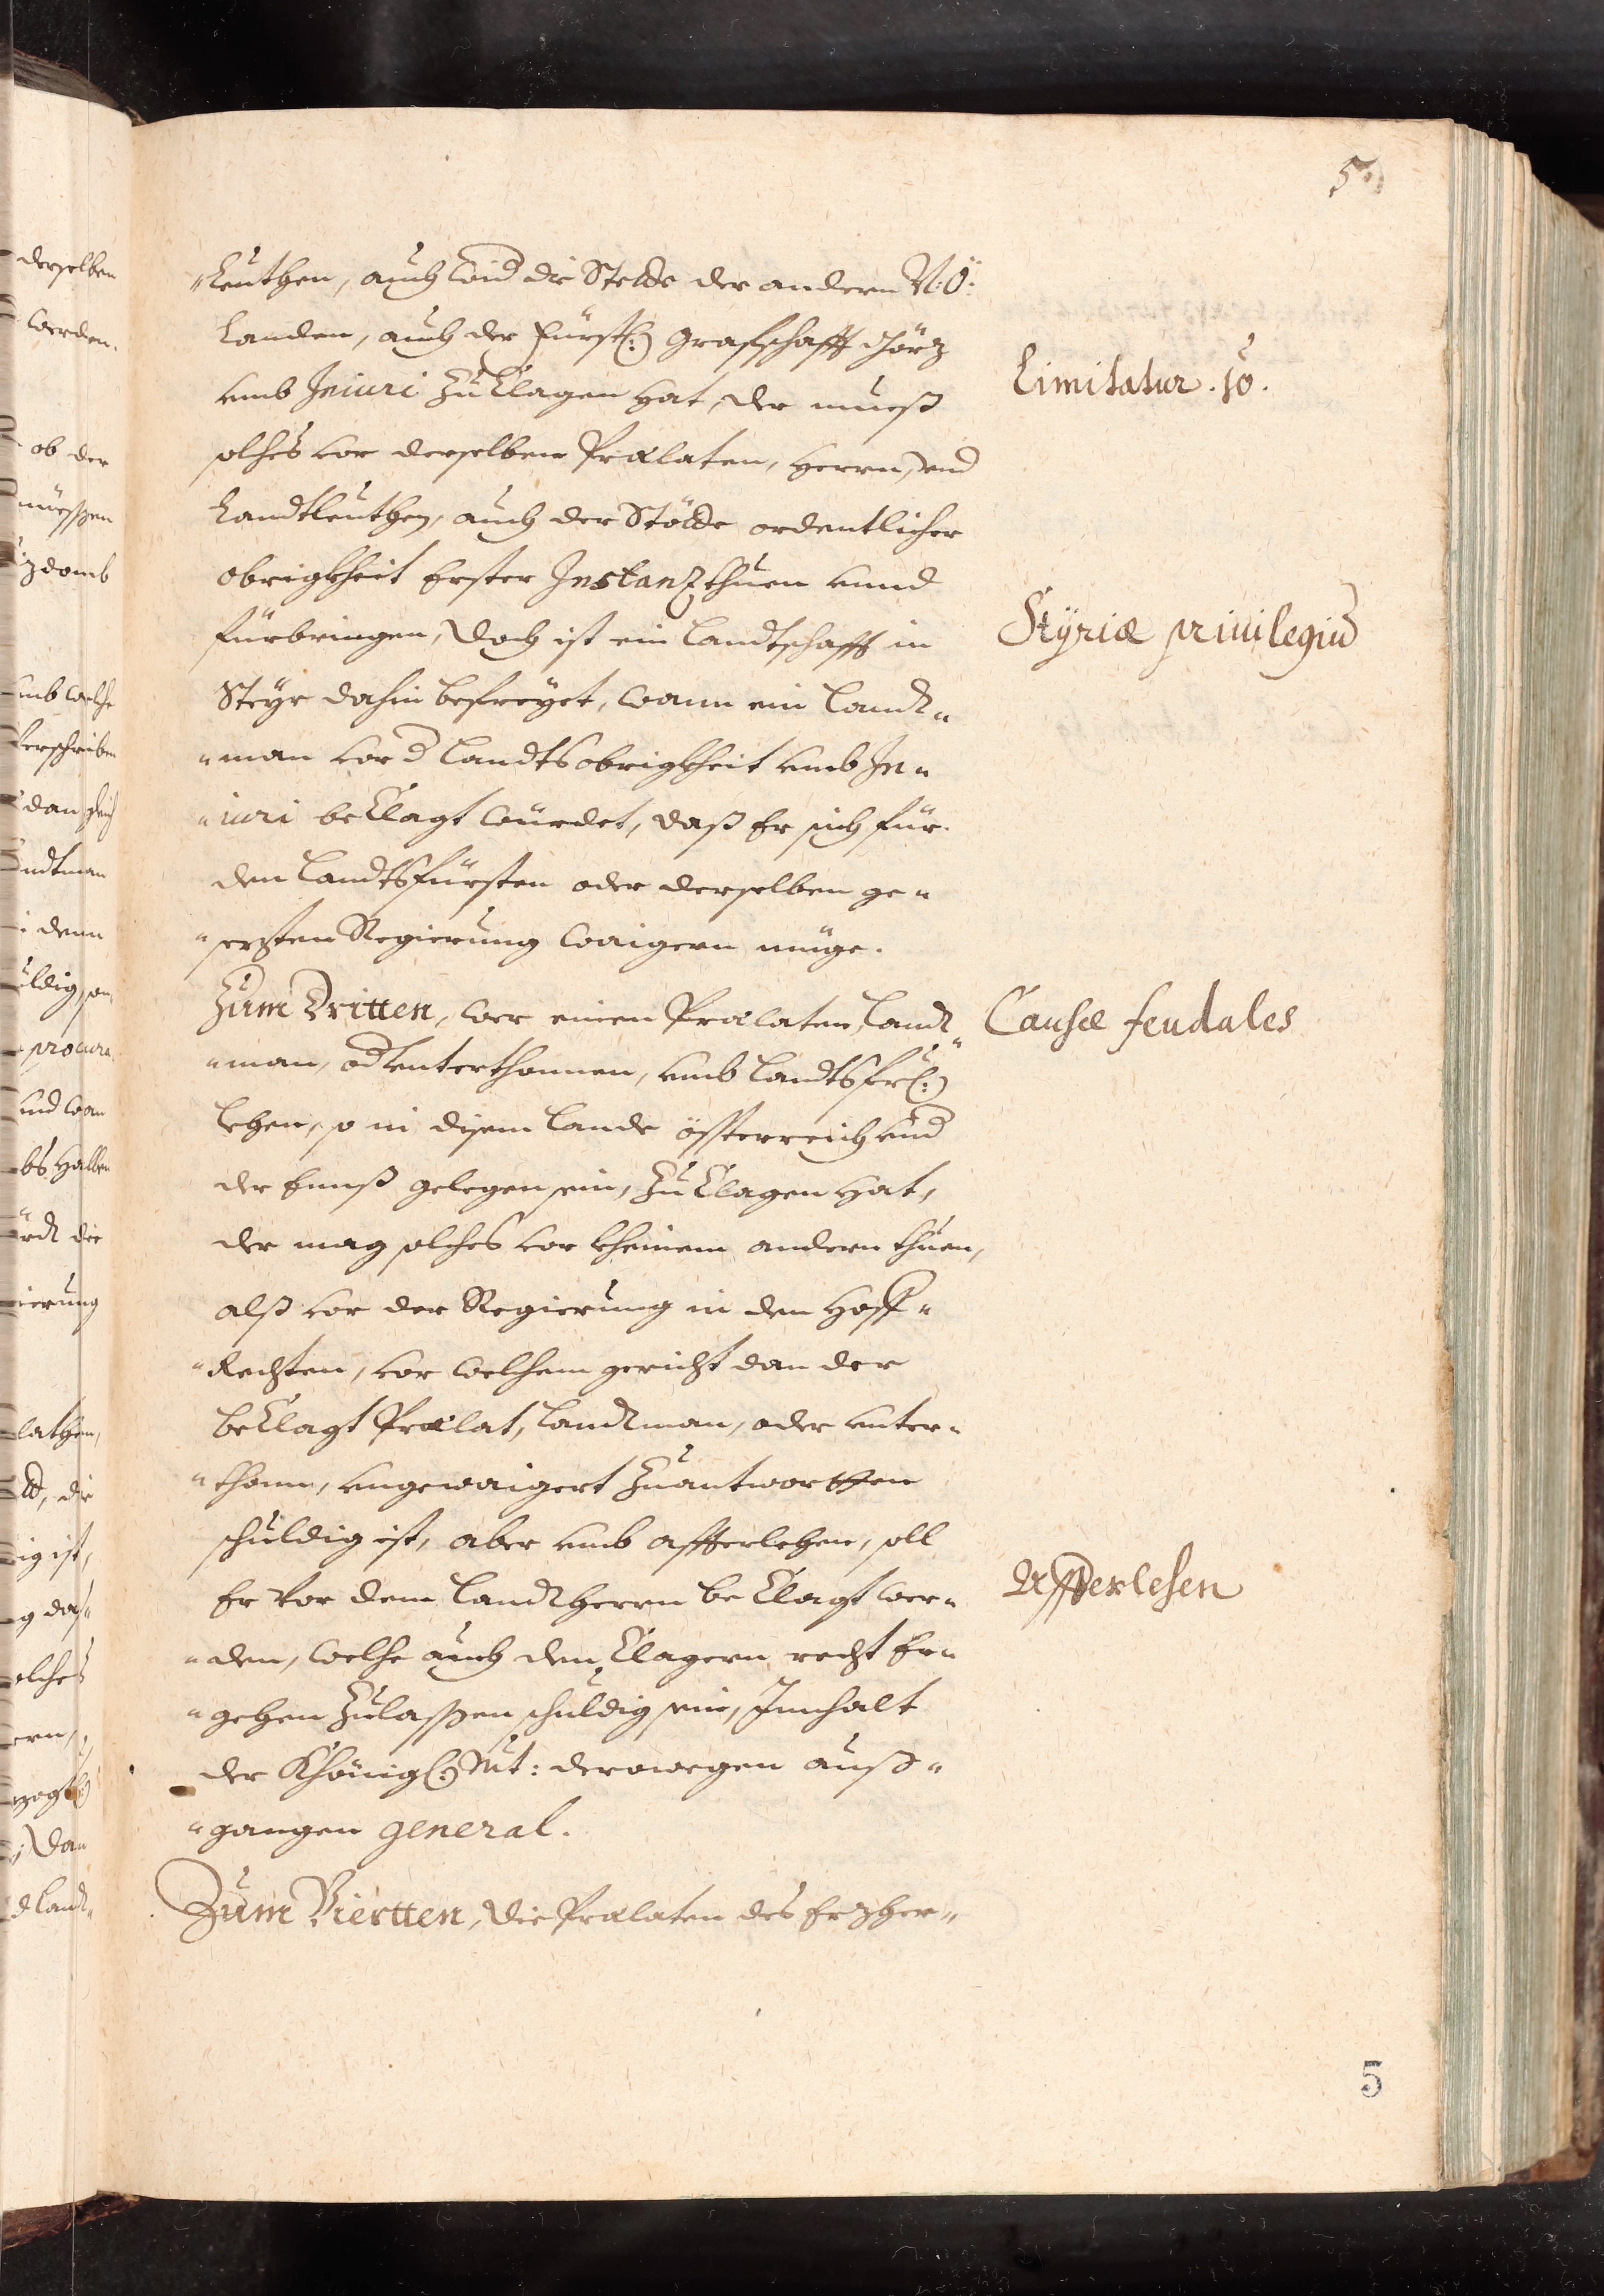 5.)
"leuthen, auch wid die Stette der andern N: Ö:
Landen, auch der Fürstl:) Grafschafft Görz
umb Iniuri zu Clagen hat, der mueß
solches vor derselben Prælaten, Herrn, und
Landtleuthen, auch der Stätte ordentlicher
obrigkheit Erster Instanz thuen unnd
fürbringen, Doch ist ein Landtschafft in
Steyr dahin befreyet, wann ein Landt-
-man vor d Landtsobrigkheit umb In-
-iuri beClagt würdet, daß Er sich für
den Landtsfürsten oder derselben ge-
-sezten Regierung waigern müge.
Zum Dritten, wer einen Prælaten, Landt-
-man, od unterthonnen, umb Landtsfrl:)
lehen, so in disem Lande össterreich und
der Ennß gelegen sein, zu Clagen hat,
der mag solches vor kheinem andern thuen,
alß vor der Regierung in den Hoff-
-Rechten, vor welchem gericht dan der
beClagt Prælat, Landtman, oder unter-
-thonn, ungewaigert zuantwortten
schuldig ist, aber umb affterlehen, soll
Er vor dem Landtherrn beClagt wer-
-den, welche auch den Clagern recht Er-
-gehen zulassen schuldig sein, Innhalt
der Khönigl:) Mt: derowegen auß-
-gangen general.
Zum Viertten, die Prælaten des Erzher-
Limitatur. 10.
Styriæ priuilegiu
Causæ feudales
Affterlehen
5